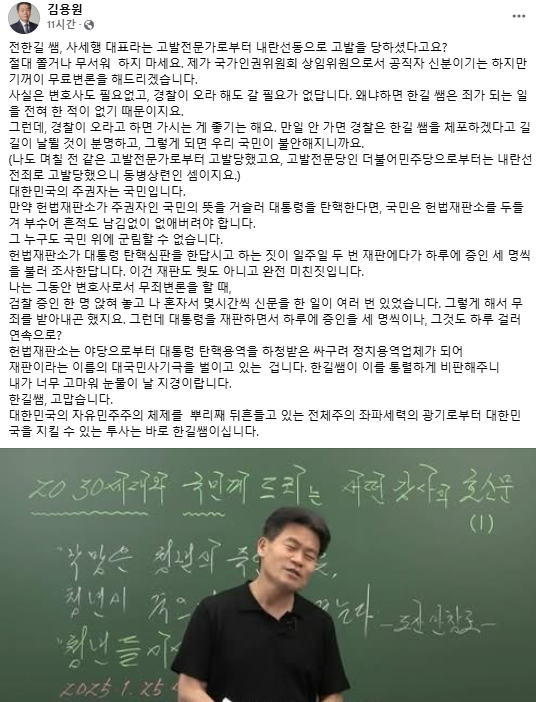 김용원
11시간 ·
전한길 쌤, 사세행 대표라는 고발전문가로부터 내란선동으로 고발을 당하셨다고요?
절대 쫄거나 무서워  하지 마세요. 제가 국가인권위원회 상임위원으로서 공직자 신분이기는 하지만
기꺼이 무료변론을 해드리겠습니다.
사실은 변호사도 필요없고, 경찰이 오라 해도 갈 필요가 없답니다. 왜냐하면 한길 쌤은 죄가 되는 일
을 전혀 한 적이 없기 때문이지요.
그런데, 경찰이 오라고 하면 가시는 게 좋기는 해요. 만일 안 가면 경찰은 한길 쌤을 체포하겠다고 길
길이 날뛸 것이 분명하고, 그렇게 되면 우리 국민이 불안해지니까요.
(나도 며칠 전 같은 고발전문가로부터 고발당했고요, 고발전문당인 더불어민주당으로부터는 내란선
전죄로 고발당했으니 동병상련인 셈이지요.)
대한민국의 주권자는 국민입니다.
만약 헌법재판소가 주권자인 국민의 뜻을 거슬러 대통령을 탄핵한다면, 국민은 헌법재판소를 두들
겨 부수어 흔적도 남김없이 없애버려야 합니다.
그 누구도 국민 위에 군림할 수 없습니다.
헌법재판소가 대통령 탄핵심판을 한답시고 하는 짓이 일주일 두 번 재판에다가 하루에 증인 세 명씩
을 불러 조사한답니다. 이건 재판도 뭣도 아니고 완전 미친짓입니다.
나는 그동안 변호사로서 무죄변론을 할 때,
검찰 증인 한 명 앉혀 놓고 나 혼자서 몇시간씩 신문을 한 일이 여러 번 있었습니다. 그렇게 해서 무
죄를 받아내곤 했지요. 그런데 대통령을 재판하면서 하루에 증인을 세 명씩이나, 그것도 하루 걸러
연속으로?
헌법재판소는 야당으로부터 대통령 탄핵용역을 하청받은 싸구려 정치용역업체가 되어
재판이라는 이름의 대국민사기극을 벌이고 있는  겁니다. 한길쌤이 이를 통렬하게 비판해주니
내가 너무 고마워 눈물이 날 지경이랍니다.
한길쌤, 고맙습니다.
대한민국의 자유민주주의 체제를  뿌리째 뒤흔들고 있는 전체주의 좌파세력의 광기로부터 대한민
국을 지킬 수 있는 투사는 바로 한길쌤이십니다.
20 30세대와 국민께 드리는 역사 강사의 호소문
(1)
"낙망은 청년의 죽
청년이 죽으
-도산 안창호-
"청년들
2025.1.25